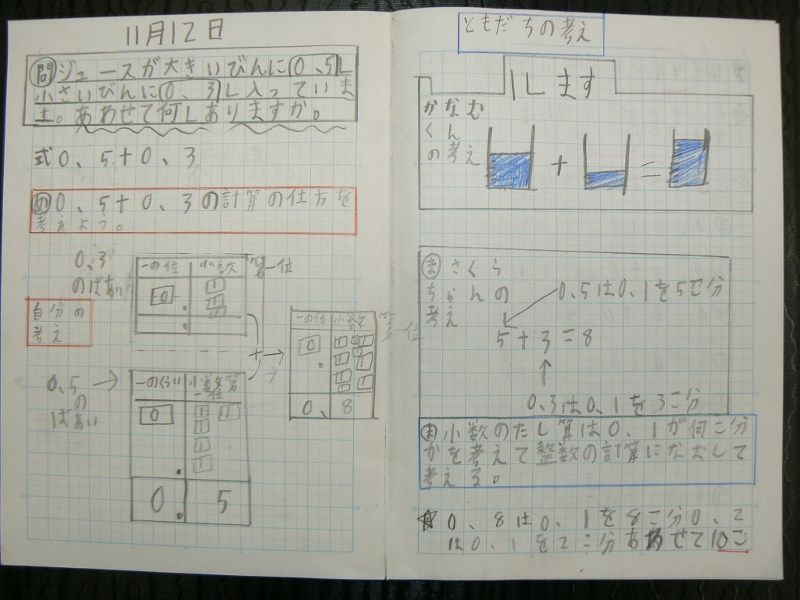 11月12日
問ジュースが大きいびんに0、5L
小さいびんに0、3L入っていま
す。あわせて何Lありますか。
式0、5+0、3
め0、5+0、3の計算の仕方を
考えよう。
0、3
のばあい
一の位 小数第一位
0
.
自分の
考え
0、5
の
ばあい
一のくらい 小数第一位
0
.
0.5
+
一の位 小数第一位
0
.
0.8
ともだちの考え
1します
かなむ
くん
の考え
+ =
ま さくら
ちゃんの
考え
0、5は0、1を5こ分
5+3=8
0、3は0、1を3こ分
ま小数のたし算は0、1が何こ分
かを考えて整数の計算になおして
考える。
0、8は0、1を8こ分0、2
は0、1を2こ分あわせて10こ